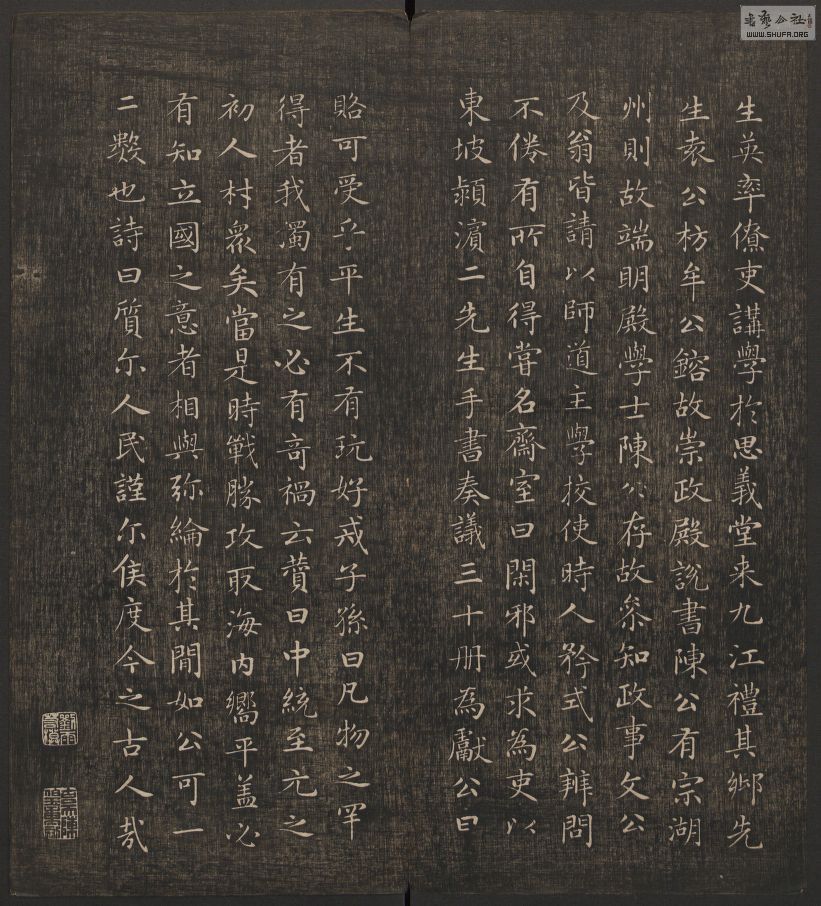 生英率僚吏講學於思義堂来九江禮其鄉先
生袁公枋牟公鎔故崇政殿說書陳公有宗湖
州則故端明殿學士陳公存故叅知政事文公
及翁皆請以師道主學挍使時人矜式公辨問
不倦有所自得甞名齋室曰閑邪或求為吏以
東坡頴濵二先生手書奏議三十册為獻公曰
賂可受乎平生不有玩好戒子孫曰凡物之罕
得者我獨有之必有奇禍云贊曰中統至元之
初人材衆矣當是時戰勝攻取海内嚮平盖必
有知立國之意者相與弥綸於其間如公可一
二數也詩曰質尔人民謹尔侯度今之古人㢤
WWW.SHUFA.ORG